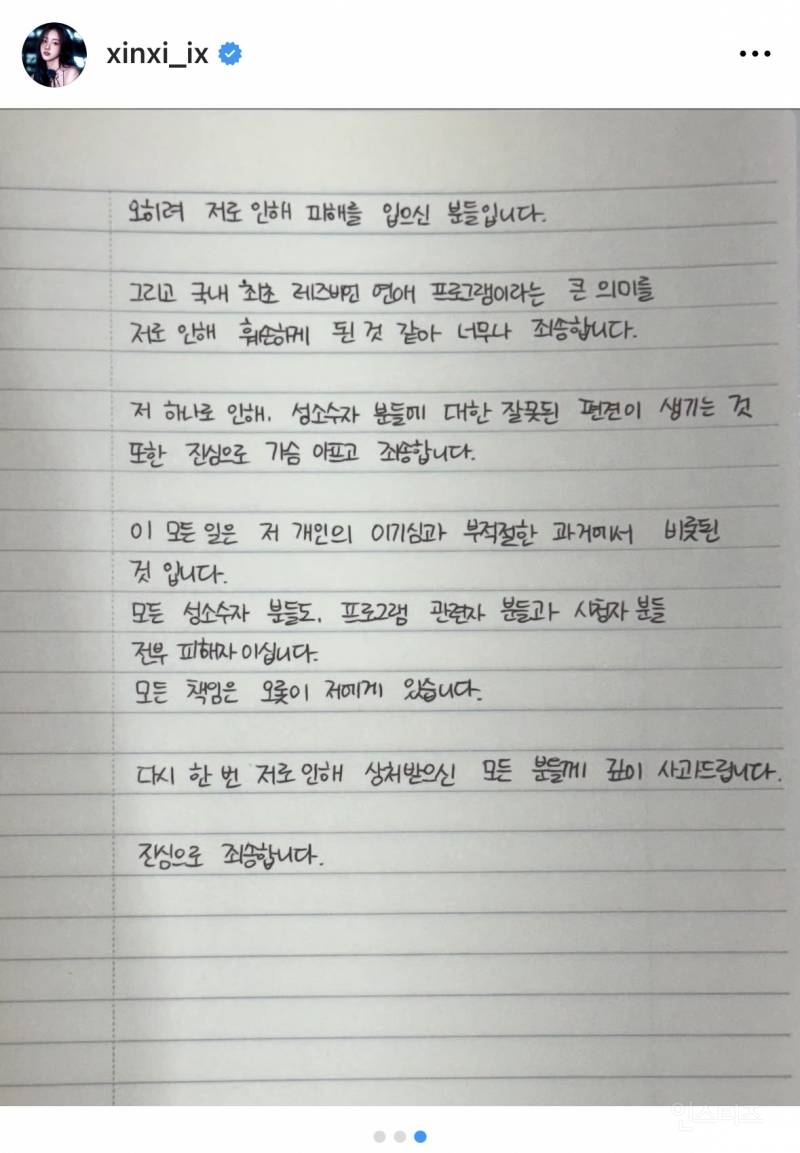 xinxi_ix
오히려 저로 인해 피해를 입으신 분들입니다.
그리고 국내 최초 레즈비언 연애 프로그램이라는 큰 의미를
저로 인해 훼손하게 된 것 같아 너무나 죄송합니다.
저 하나로 인해, 성소수자 분들에 대한 잘못된 편견이 생기는 것
또한 진심으로 가슴 아프고 죄송합니다.
이 모든 일은 저 개인의 이기심과 부적절한 과거에서 비롯된
것 입니다.
모든 성소수자 분들도, 프로그램 관련자 분들과 시청자 분들
전부 피해자 이십니다.
모든 책임은 오롯이 저에게 있습니다.
다시 한 번 저로 인해 상처받으신 모든 분들께 깊이 사과드립니다.
진심으로 죄송합니다.
인스티즈